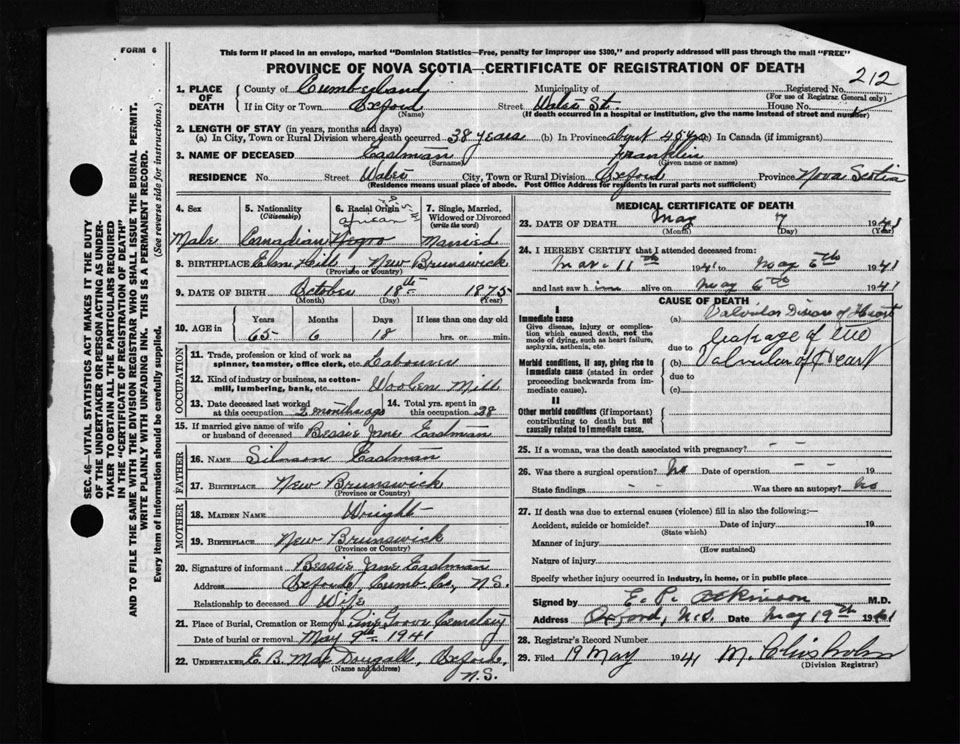 FORM 6
This form if placed in an envelope, marked "Dominion Statistics—Free, penalty for improper use $300," and properly addressed will pass through the mail "FREE"
PROVINCE OF NOVA SCOTIA—CERTIFICATE OF REGISTRATION OF DEATH
212
1. PLACE OF DEATH
County of Cumberland Municipality of Registered No.
(For use of Registrar General only)
If in City or Town Oxford Street Water St. House No.
(Name) (If death occurred in a hospital or institution, give the name instead of street and number)
2. LENGTH OF STAY (in years, months and days)
(a) In City, Town or Rural Division where death occurred 38 years (b) In Province about 45 yrs (c) In Canada (if immigrant)
3. NAME OF DECEASED Eastman Franklin
(Surname) (Given name or names)
RESIDENCE No. Street Water City, Town or Rural Division Oxford Province Nova Scotia
(Residence means usual place of abode. Post Office Address for residents in rural parts not sufficient)
4. Sex 5. Nationality (Citizenship) 6. Racial Origin 7. Single, Married, Widowed or Divorced (write the word)
african
Male Canadian Negro Married
8. BIRTHPLACE Elm Hill, New Brunswick
(Province or Country)
9. DATE OF BIRTH October 18th 1875
(Month) (Day) (Year)
10. AGE in Years Months Days If less than one day old
65 6 18 hrs. or min.
OCCUPATION
11. Trade, profession or kind of work as spinner, teamster, office clerk, etc. Labourer
12. Kind of industry or business, as cotton-mill, lumbering, bank, etc. Woolen Mill
13. Date deceased last worked at this occupation 2 months ago 14. Total yrs. spent in this occupation 38
15. If married give name of wife or husband of deceased Bessie Jane Eastman
FATHER
16. NAME Eastman
17. BIRTHPLACE New Brunswick
(Province or Country)
MOTHER
18. MAIDEN NAME Wright
19. BIRTHPLACE New Brunswick
(Province or Country)
20. Signature of informant Bessie Jane Eastman
Address Oxford, Cumb. Co, N.S.
Relationship to deceased Wife
21. Place of Burial, Cremation or Removal Pine Grove Cemetery
Date of burial or removal May 9th 1941
22. UNDERTAKER E. B. MacDougall, Oxford, N.S.
(Name and address)
MEDICAL CERTIFICATE OF DEATH
23. DATE OF DEATH May 7 1941
(Month) (Day) (Year)
24. I HEREBY CERTIFY that I attended deceased from:
Mar. 11th 1941 to May 6th 1941
and last saw him alive on May 6th 1941
CAUSE OF DEATH
I
Immediate cause
Give disease, injury or complication which caused death, not the mode of dying, such as heart failure, asphyxia, asthenia, etc.
(a) Valvular Disease of Heart
due to leakage of the
Morbid conditions, if any, giving rise to immediate cause (stated in order proceeding backwards from immediate cause).
(b) Valvular of Heart
due to
(c)
II
Other morbid conditions (if important) contributing to death but not causally related to immediate cause.
25. If a woman, was the death associated with pregnancy? - -
26. Was there a surgical operation? No Date of operation - - 19
State findings - - Was there an autopsy? No
27. If death was due to external causes (violence) fill in also the following:—
Accident, suicide or homicide? Date of injury 19
(State which)
Manner of injury
(How sustained)
Nature of injury
Specify whether injury occurred in industry, in home, or in public place
Signed by E. P. Atkinson M.D.
Address Oxford, N.S. Date May 19th 1941
28. Registrar's Record Number
29. Filed 19 May 1941 M. Chisholm
(Division Registrar)
SEC. 46—VITAL STATISTICS ACT MAKES IT THE DUTY
OF THE UNDERTAKER OR PERSON ACTING AS UNDER-
TAKER TO OBTAIN ALL THE PARTICULARS REQUIRED
IN THE "CERTIFICATE OF REGISTRATION OF DEATH"
AND TO FILE THE SAME WITH THE DIVISION REGISTRAR WHO SHALL ISSUE THE BURIAL PERMIT.
WRITE PLAINLY WITH UNFADING INK. THIS IS A PERMANENT RECORD.
Every item of information should be carefully supplied. (See reverse side for instructions.)